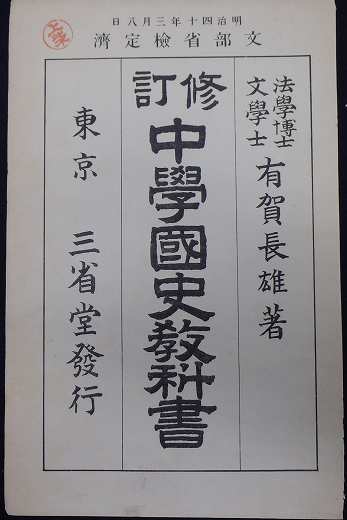 明治四十年三月八日
文部省檢定濟
法學博士
文學士
有賀長雄著
修訂
中學國史教科書
東京 三省堂發行